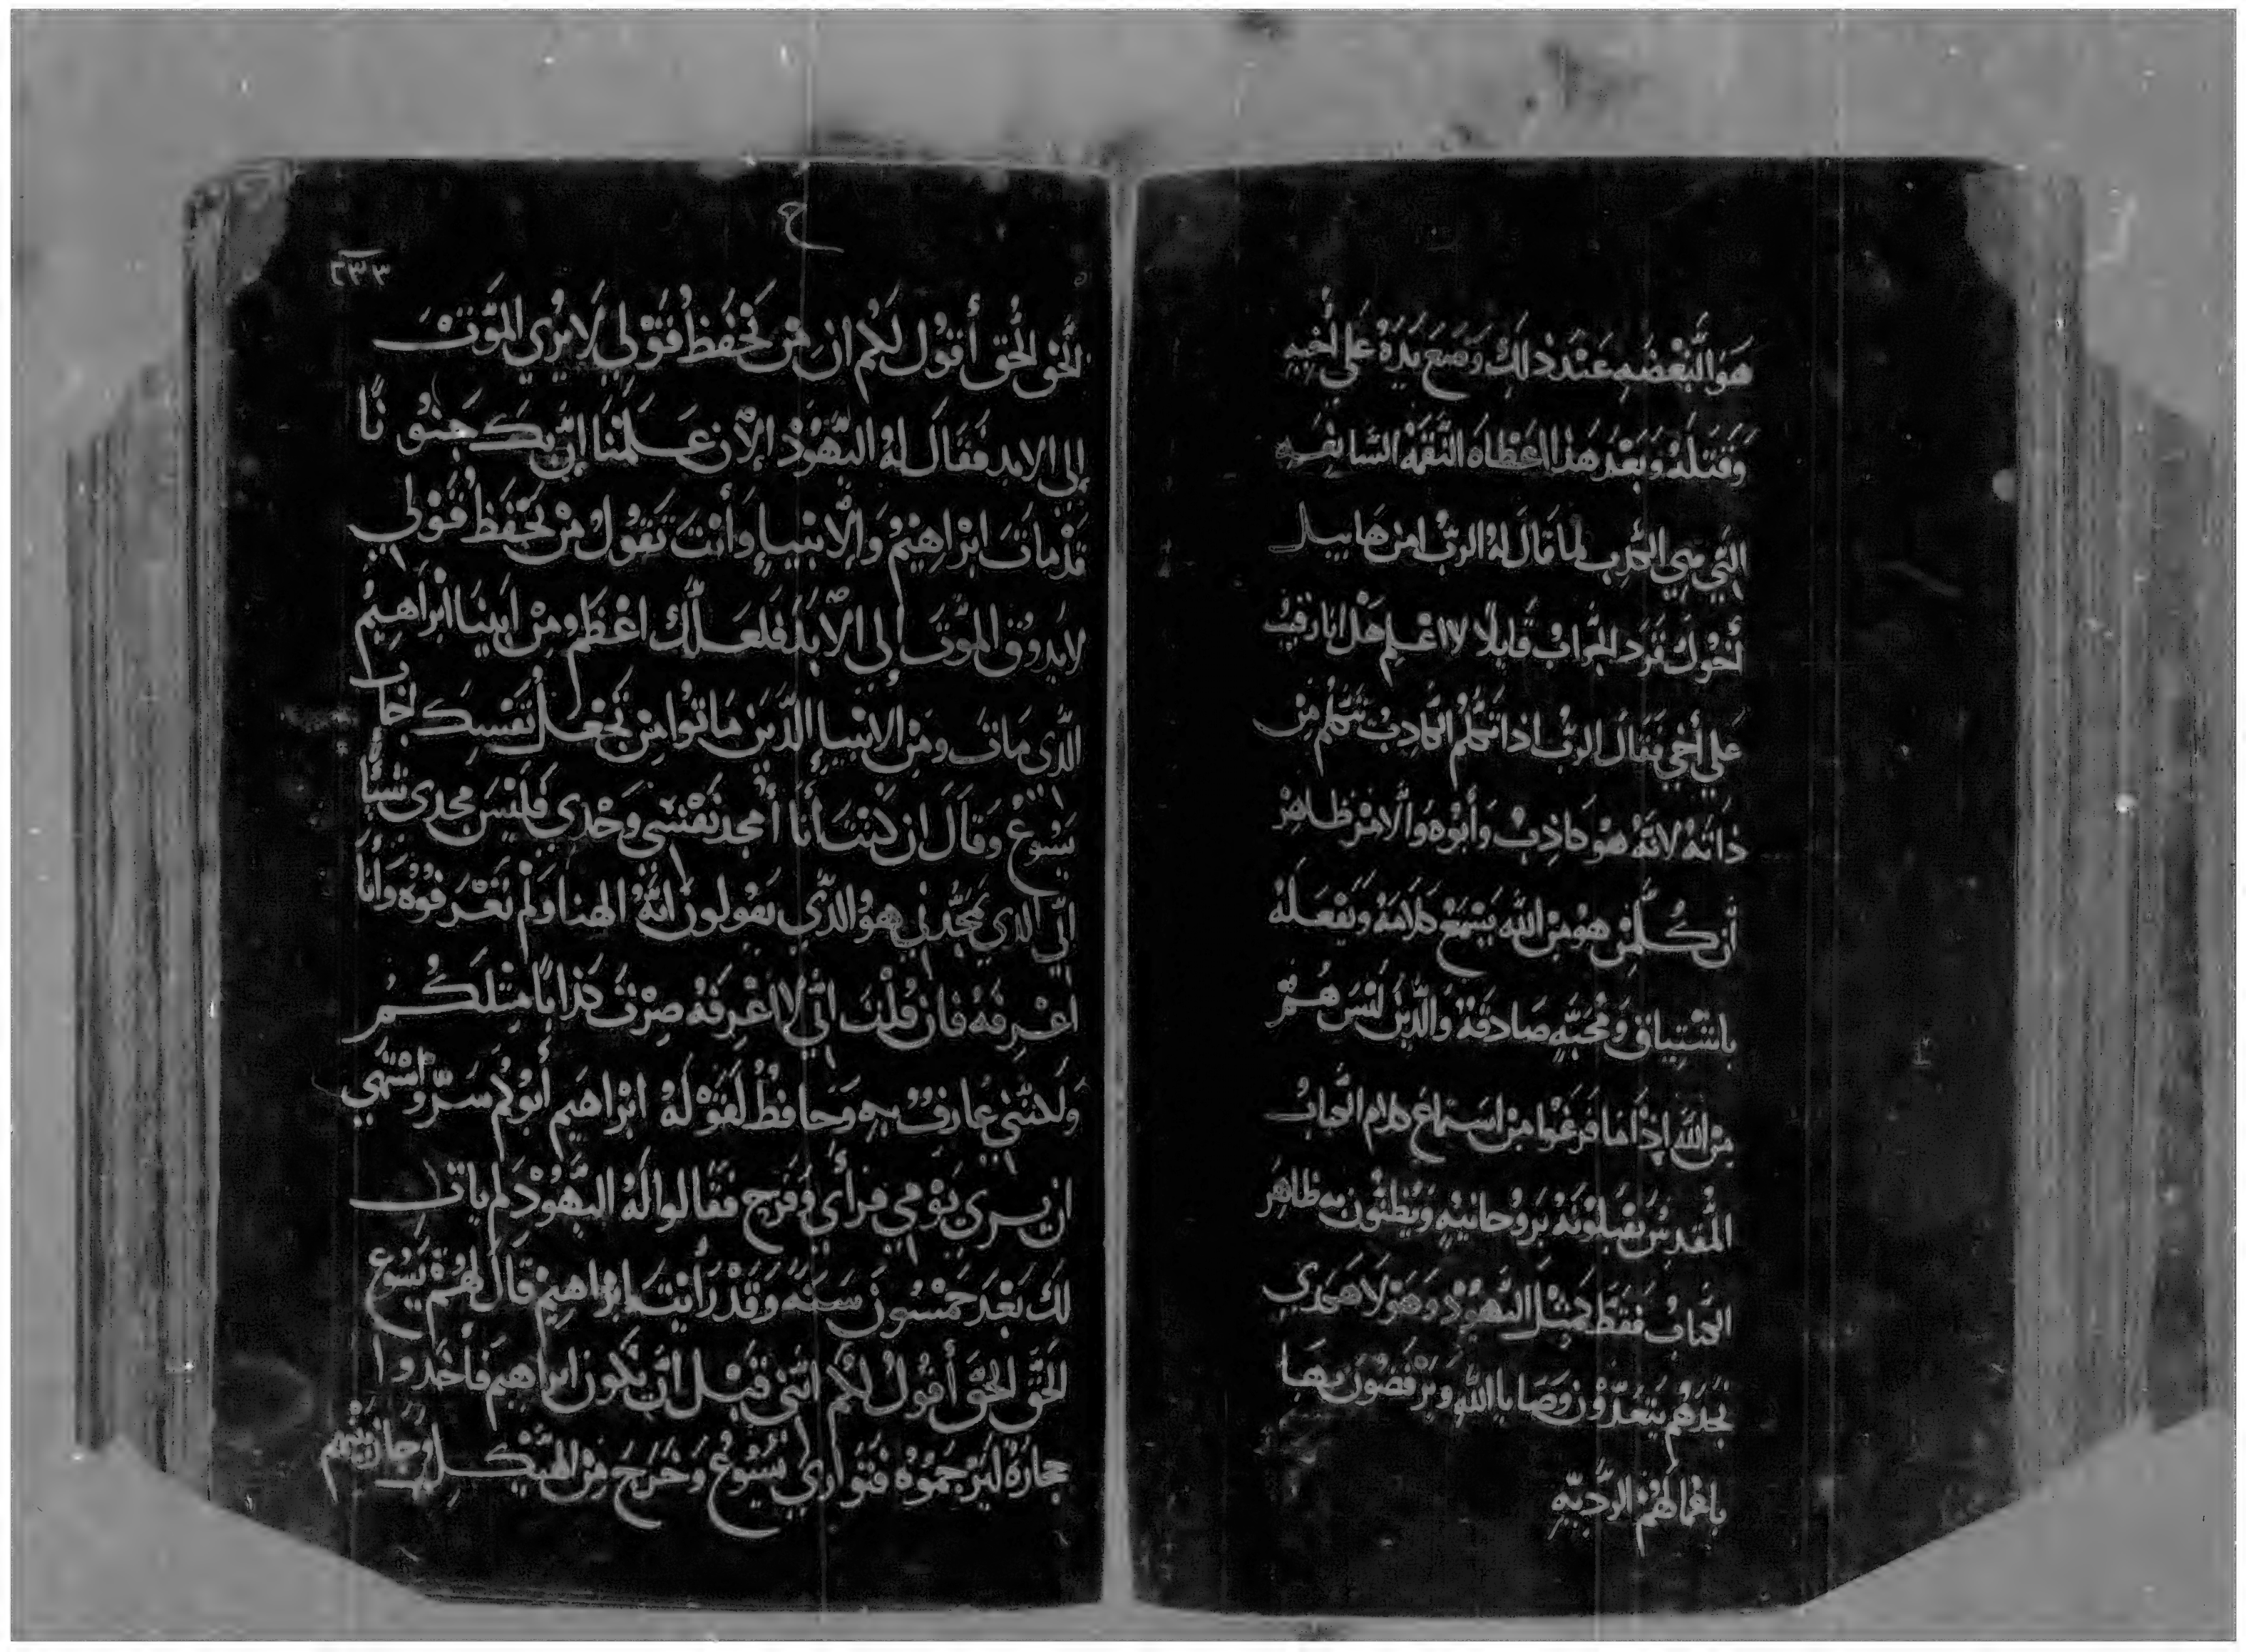 هو البغضه عند ذلك وضع يده علي أخيه
وقتله وبعد هذا اعطاه النقمه السابغه
التي هي الكدب لما قال له الرب اين هابيل
أخوك فرد الجواب قايلا لا اعلم هل انا رقيب
علي أخي فقال الرب اذا تكلم الكادب تتكلم من
ذاته لانه هو كاذب وأبوه والامر ظاهر
أن كلمن هو من الله يسمع كلامه ويفعله
باشتياق ومحبه صادقه والذين ليس هم
من الله إذا ما فرغوا من استماع كلام الكتاب
المقدس يقبلونه بروحانيه ويظنون به ظاهر
الكتاب فقط كمثل اليهود وهولاهمدي
نجدهم يتعدون وصايا الله ويرفضون بها
باعمالهم الرديه
ح
٢٣٣
الحق الحق أقول لكم ان من يحفظ قولي لا يري الموت
إلي الابد فقال له اليهود الان علمنا إن بك جنونا
قد مات ابراهيم والانبيا وأنت تقول من يحفظ قولي
لا يدوق الموت إلي الابد فلعلك اعظم من ابينا ابراهيم
الذي مات ومن الانبيا الذين ماتوا من تجعل نفسك اجاب
يسوع وقال ان كنت أنا أمجد نفسي وحدي فليس مجدي شيأ
ابي الذي يمجدني هو الذي يقولون انه الهنا ولم تعرفوه وأنا
اعرفه فان قلت اني لا اعرفه صرت كذابا مثلكم
ولكنني عارف به وحافظ لقوله ابراهيم أبوكم سر واشتهي
ان يري يومي فرأي وفرح فقالوا له اليهود لم يات
لك بعد خمسون سنه وقد رأيت ابراهيم قال لهم يسوع
الحق الحق أقول لكم انني قبل ان يكون ابراهيم فأخدوا
حجاره ليرجموه فتواري يسوع وخرج من الهيكل وجاز بينهم